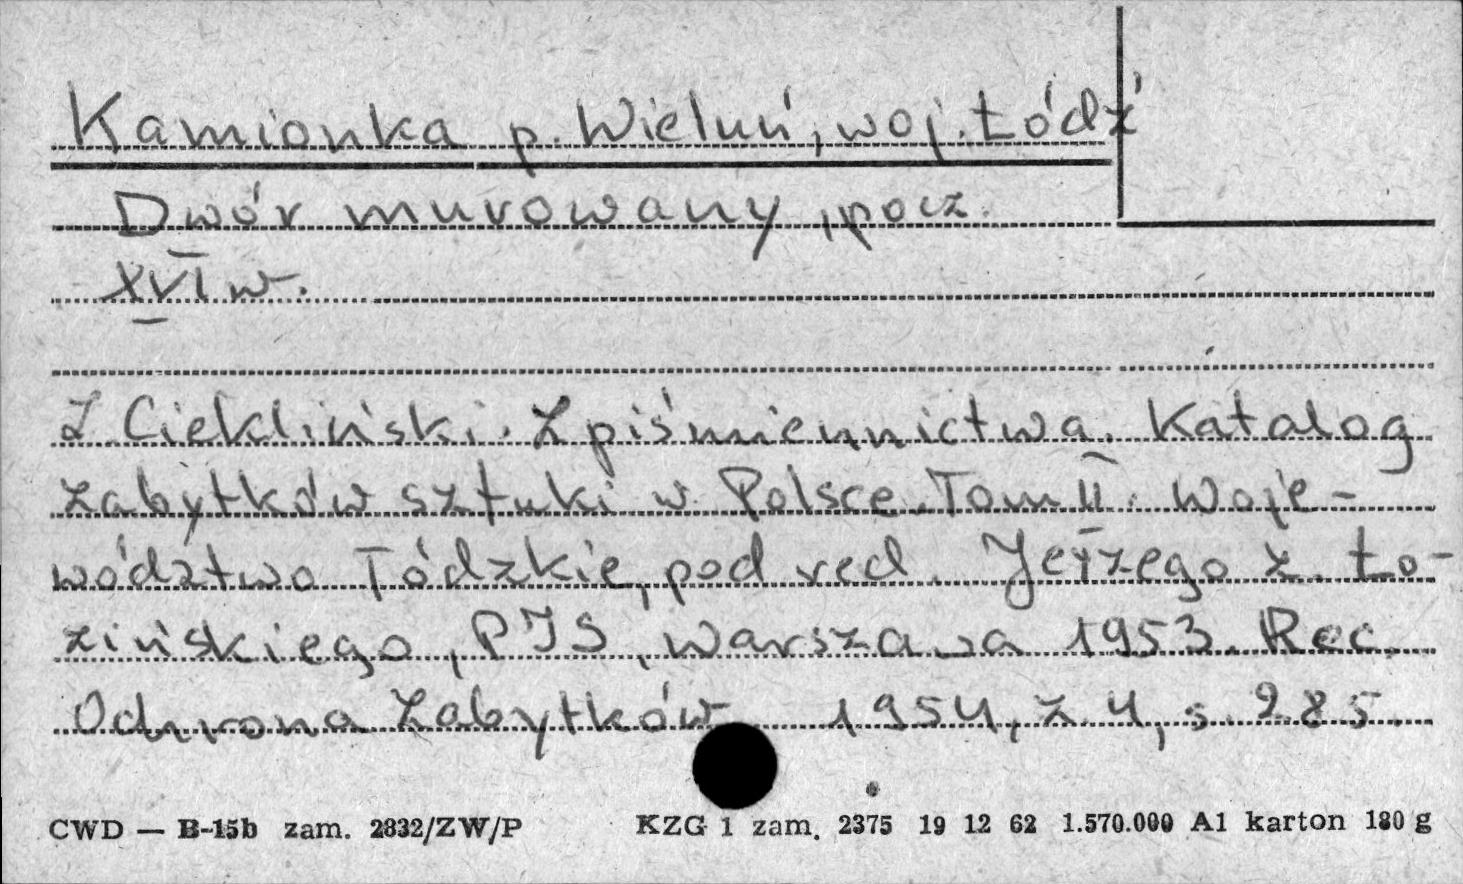 Kamionka p. Wieluń, woj. Łódź
Dwór murowany, pocz.
XVI w.
Z Ciekliński. Z piśmiennictwa. Katalog
zabytków sztuki w Polsce. Tom II. Woje-
wództwo Łódzkie, pod red. Jerzego Z. Ło-
zińskiego, PIS, Warszawa 1953. Rec.
Ochrona Zabytków 1954, z. 4, s. 285.
CWD — B-15b zam. 2832/ZW/P KZG 1 zam. 2375 19 12 62 1.570.000 A1 karton 180 g